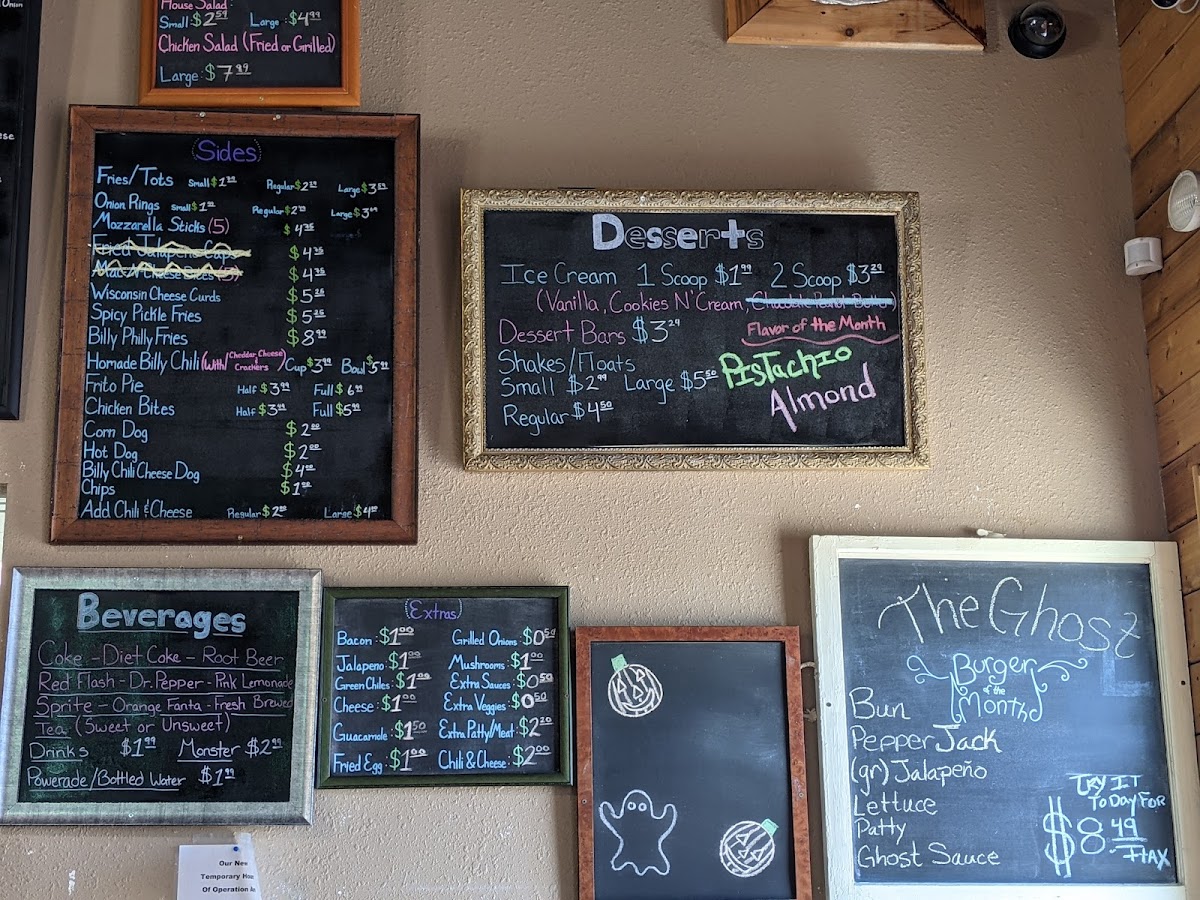 House Salad:
Small: $2.59 Large: $4.99
Chicken Salad (Fried or Grilled)
Large: $7.99
Sides
Fries/Tots Small $1.99 Regular $2.59 Large $3.59
Onion Rings Small $1.99 Regular $2.99 Large $3.99
Mozzarella Sticks (5) $4.25
Fried Jalapeno Caps $4.25
$4.25
Wisconsin Cheese Curds $5.25
Spicy Pickle Fries $5.25
Billy Philly Fries $8.99
Homade Billy Chili (With/ Cheddar Cheese & Crackers )/Cup $3.99 Bowl $5.99
Frito Pie Half $3.99 Full $6.99
Chicken Bites Half $3.99 Full $5.99
Corn Dog $2.00
Hot Dog $2.00
Billy Chili Cheese Dog $4.00
Chips $1.00
Add Chili & Cheese Regular $2.00 Large $4.00
Desserts
Ice Cream 1 Scoop $1.99 2 Scoop $3.29
(Vanilla, Cookies N' Cream,
Dessert Bars $3.29 Flavor of the Month
Shakes/Floats Pistachio
Small $2.99 Large $5.50 Almond
Regular $4.50
Beverages
Coke - Diet Coke - Root Beer
Red Flash - Dr. Pepper - Pink Lemonade
Sprite - Orange Fanta - Fresh Brewed
Tea (Sweet or Unsweet)
Drinks $1.99 Monster $2.99
Powerade/Bottled Water $1.99
Extras
Bacon: $1.00 Grilled Onions: $0.50
Jalapeno: $1.00 Mushrooms: $1.00
Green Chiles: $1.00 Extra Sauces: $0.50
Cheese: $1.00 Extra Veggies: $0.50
Guacamole: $1.50 Extra Patty/Meat: $2.20
Fried Egg: $1.00 Chili & Cheese: $2.00
The Ghost
Burger
of the
Month
Bun
Pepper Jack
(gr) Jalapeño
Lettuce
Patty
Ghost Sauce
Try It
Today For
$8.49
+TAX
Our New
Temporary
Of Operation